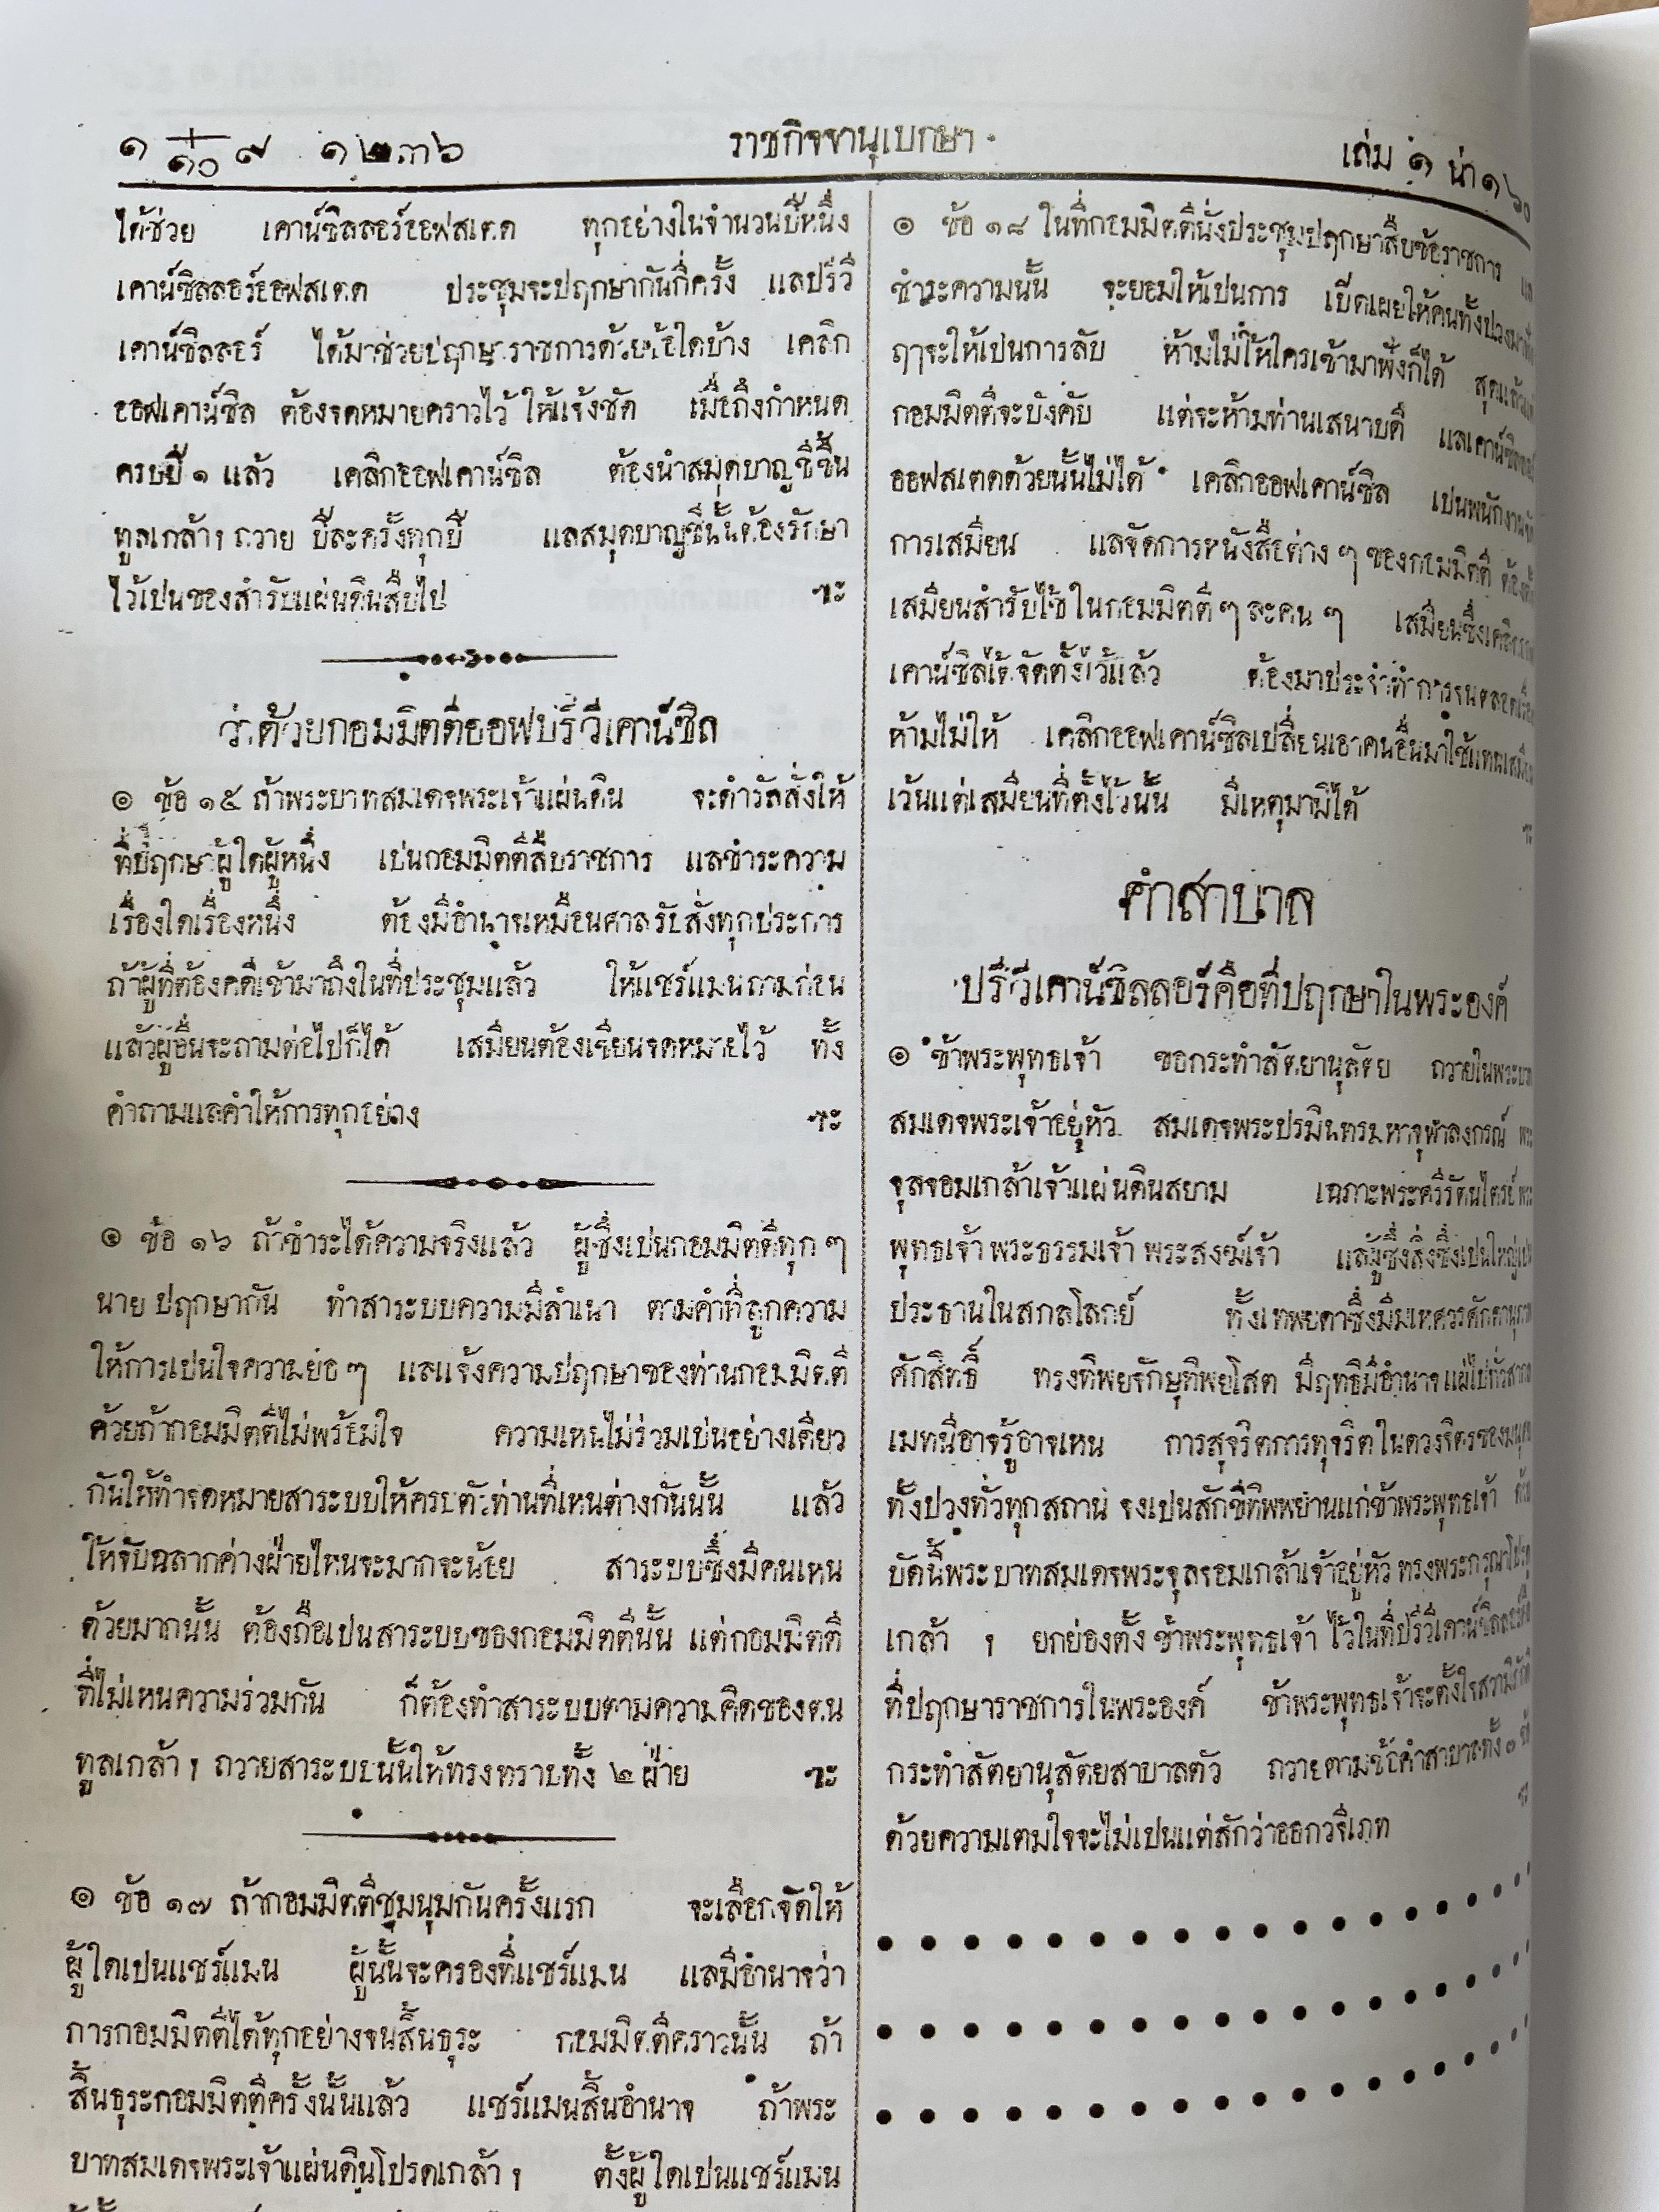 ๑ +/๑๐ ๙ ๑๒๓๖ ราชกิจจานุเบกษา เล่ม ๑ น่า ๑๖๐
ได้ช่วย เคาน์ซิลลอร์ออฟสเตด ทุกอย่างในจำนวนปีหนึ่ง
เคาน์ซิลลอร์ออฟสเตด ประชุมจะปฤกษากันกี่ครั้ง แลปรีวี
เคาน์ซิลลอร์ ได้มาช่วยปฤกษาราชการด้วยข้อใดบ้าง เคลิก
ออฟเคาน์ซิล ต้องจดหมายคราวไว้ ให้แจ้งชัด เมื่อถึงกำหนด
ครบปี ๑ แล้ว เคลิกออฟเคาน์ซิล ต้องนำสมุดบาญชีขึ้น
ทูลเกล้าฯ ถวาย ปีละครั้งทุกปี แลสมุดบาญชีนั้นต้องรักษา
ไว้เปนของสำรับแผ่นดินสืบไป ฯะ
ว่าด้วยกอมมิตตีออฟปรีวีเคาน์ซิล
๏ ข้อ ๑๕ ถ้าพระบาทสมเดจพระเจ้าแผ่นดิน จะดำรัสสั่งให้
ที่ปฤกษาผู้ใดผู้หนึ่ง เปนกอมมิตตีสืบราชการ แลชำระความ
เรื่องใดเรื่องหนึ่ง ต้องมีอำนาจเหมือนศาลรับสั่งทุกประการ
ถ้าผู้ที่ต้องคดีเข้ามาถึงในที่ประชุมแล้ว ให้แชร์แมนถามก่อน
แล้วผู้อื่นจะถามต่อไปก็ได้ เสมียนต้องเขียนจดหมายไว้ ทั้ง
คำถามแลคำให้การทุกอย่าง ฯะ
๏ ข้อ ๑๖ ถ้าชำระได้ความจริงแล้ว ผู้ซึ่งเปนกอมมิตตีทุก ๆ
นาย ปฤกษากัน ทำสาระบบความมีสำเนา ตามคำที่ลูกความ
ให้การเปนใจความย่อ ๆ แลแจ้งความปฤกษาของท่านกอมมิตตี
ด้วยถ้ากอมมิตตีไม่พร้อมใจ ความเหนไม่ร่วมเปนอย่างเดียว
กันให้ทำจดหมายสาระบบให้ครบตัวท่านที่เหนต่างกันนั้น แล้ว
ให้จับฉลากค่างฝ่ายไหนจะมากจะน้อย สาระบบซึ่งมีคนเหน
ด้วยมากนั้น ต้องถือเปนสาระบบของกอมมิตตีนั้น แต่กอมมิตตี
ที่ไม่เหนความร่วมกัน ก็ต้องทำสาระบบตามความคิดของตน
ทูลเกล้าฯ ถวายสาระบบนั้นให้ทรงทราบทั้ง ๒ ฝ่าย ฯะ
๏ ข้อ ๑๗ ถ้ากอมมิตตีชุมนุมกันครั้งแรก จะเลือกจัดให้
ผู้ใดเปนแชร์แมน ผู้นั้นจะครองที่แชร์แมน แลมีอำนาจว่า
การกอมมิตตีได้ทุกอย่างจนสิ้นธุระ กอมมิตตีคราวนั้น ถ้า
สิ้นธุระกอมมิตตีครั้งนั้นแล้ว แชร์แมนสิ้นอำนาจ ถ้าพระ
บาทสมเดจพระเจ้าแผ่นดินโปรดเกล้าฯ ตั้งผู้ใดเปนแชร์แมน
๏ ข้อ ๑๘ ในที่กอมมิตตีนั่งประชุมปฤกษาสืบข้อราชการ แล
ชำระความนั้น จะยอมให้เปนการ เปิดเผยให้คนทั้งปวงมาฟัง
ฤๅจะให้เปนการลับ ห้ามไม่ให้ใครเข้ามาฟังก็ได้ สุดแล้วแต่
กอมมิตตีจะบังคับ แต่จะห้ามท่านเสนาบดี แลเคาน์ซิลลอร์
ออฟสเตดด้วยนั้นไม่ได้ เคลิกออฟเคาน์ซิล เปนพนักงานจัด
การเสมียน แลจัดการหนังสือต่าง ๆ ของกอมมิตตี ต้องตั้ง
เสมียนสำรับใช้ในกอมมิตตี ๆ ละคน ๆ เสมียนซึ่งเคลิกออฟ
เคาน์ซิลได้จัดตั้งไว้แล้ว ต้องมาประจำทำการจนตลอดเรื่อง
ห้ามไม่ให้ เคลิกออฟเคาน์ซิลเปลี่ยนเอาคนอื่นมาใช้แทนเสมียน
เว้นแต่เสมียนที่ตั้งไว้นั้น มีเหตุมามิได้ ฯะ
คำสาบาล
ปรีวีเคาน์ซิลลอร์คือที่ปฤกษาในพระองค์
๏ ข้าพระพุทธเจ้า ขอกระทำสัตยานุสัตย ถวายในพระบาท
สมเดจพระเจ้าอยู่หัว สมเดจพระปรมินทรมหาจุฬาลงกรณ์ พระ
จุลจอมเกล้าเจ้าแผ่นดินสยาม เฉภาะพระศรีรัตนไตรย์ พระ
พุทธเจ้า พระธรรมเจ้า พระสงฆ์เจ้า แลผู้ซึ่งสิ่งซึ่งเปนใหญ่เปน
ประธานในสกลโลกย์ ทั้งเทพยดาซึ่งมีมเหศวรศักดานุภาพ
ศักสิทธิ์ ทรงทิพยจักษุทิพยโสต มีฤทธิมีอำนาจแผ่ไปทั่วสากล
เมทนีอาจรู้อาจเหน การสุจริตการทุจริตในดวงจิตรของมนุษ
ทั้งปวงทั่วทุกสถาน จงเปนสักขีทิพพยานแก่ข้าพระพุทธเจ้า ด้วย
บัดนี้พระบาทสมเดจพระจุลจอมเกล้าเจ้าอยู่หัว ทรงพระกรุณาโปรด
เกล้า ฯ ยกย่องตั้งข้าพระพุทธเจ้า ไว้ในที่ปรีวีเคาน์ซิลลอร์คือ
ที่ปฤกษาราชการในพระองค์ ข้าพระพุทธเจ้าจะตั้งใจสวามิภักดิ์
กระทำสัตยานุสัตยสาบาลตัว ถวายตามข้อคำสาบาลทั้ง ๓ ข้อ
ด้วยความเตมใจจะไม่เปนแต่สักว่าออกวจีเภท ฯะ